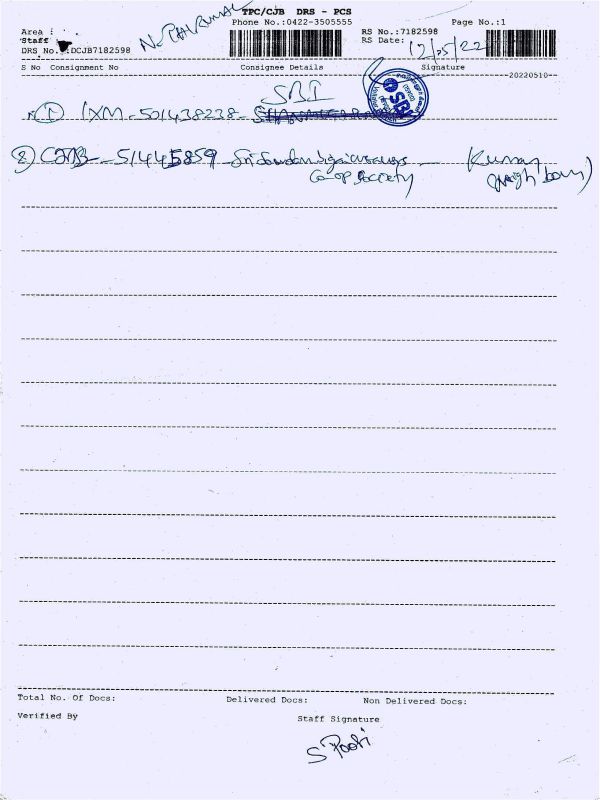 TPC/CJB DRS - PCS
Phone No.:0422-3505555 Page No.:1
Area : RS No.:7182598
Staff RS Date: 12/05/22
DRS No.:DCJB7182598
S No Consignment No Consignee Details Signature
--20220510--
SBI
① IXM-501438238- SBI
2) CJB - 51445859 - Co-op Society - Kumar (Neighbour)
Total No. Of Docs: Delivered Docs: Non Delivered Docs:
Verified By Staff Signature